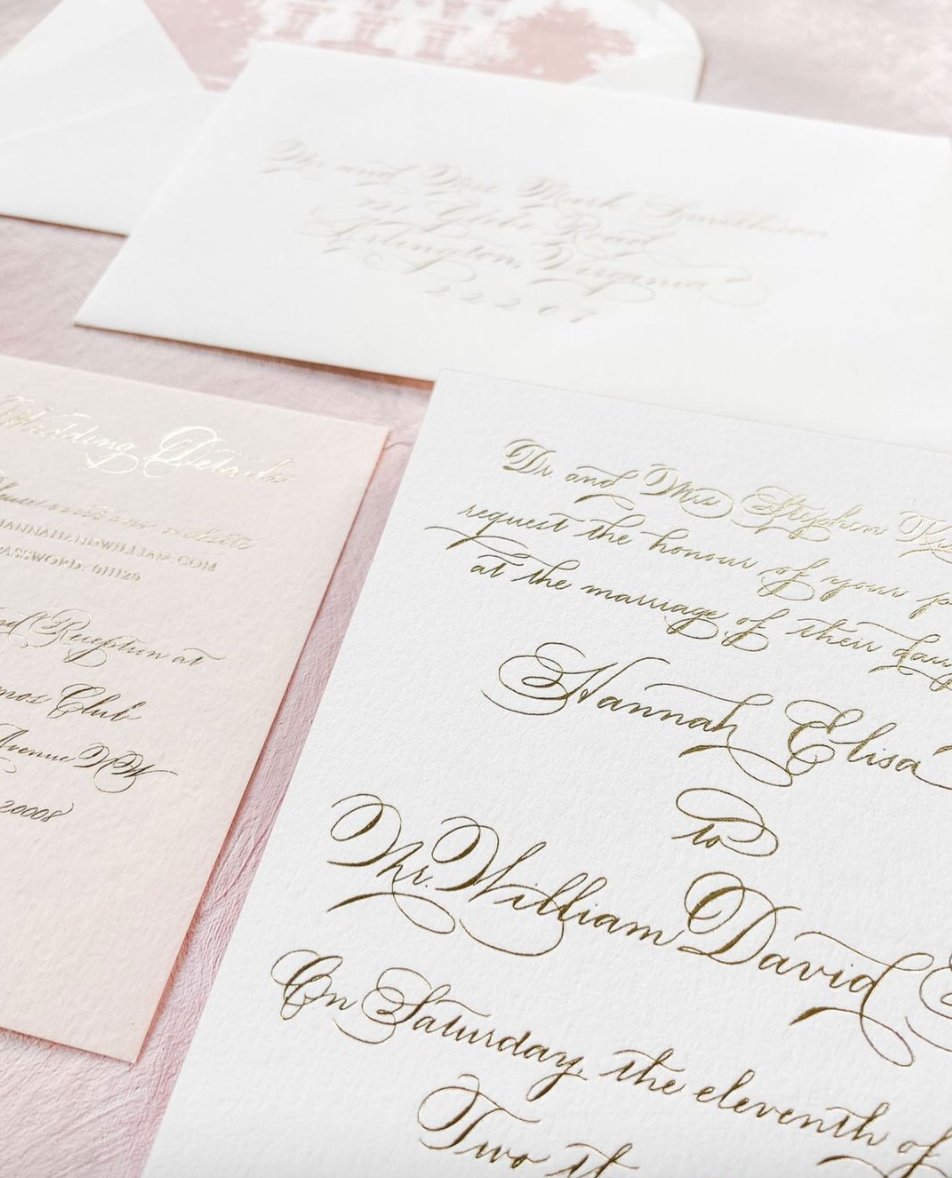 Mr and Mrs Mark
Glebe Road
Arlington, Virginia
22207
Wedding Details
Please visit our website
HANNAHANDWILLIAM.COM
PASSWORD: 011120
and Reception at
Club
Avenue NW
20008
Dr and Mrs Stephen
request the honour of your p
at the marriage of their daug
Hannah Elisa
to
Mr. William David
On Saturday, the eleventh of
Two th